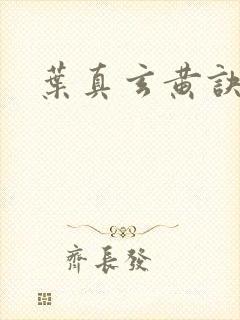 葉真玄黄訣
齊長發